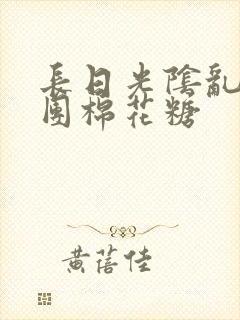 長日光陰亂
團棉花糖
黃蓓佳